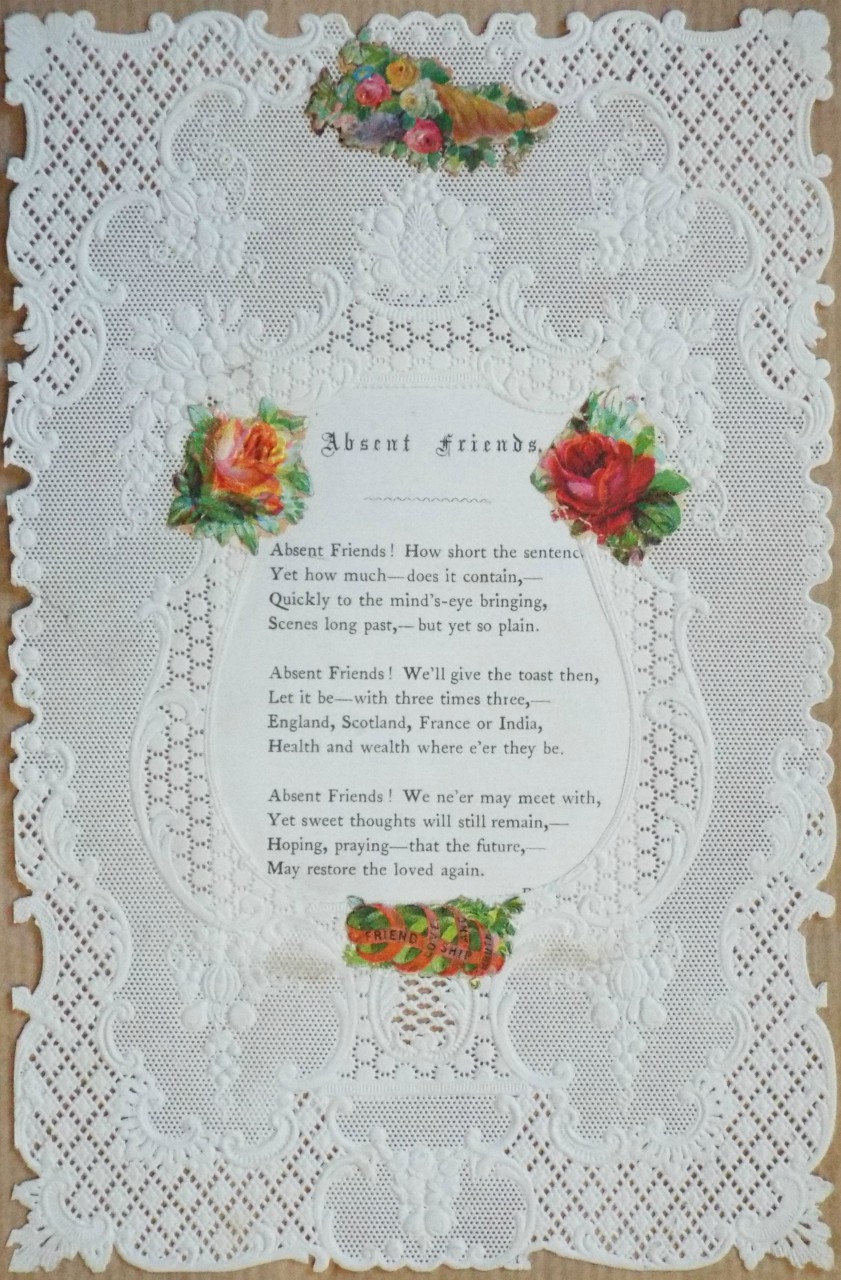 Absent Friends.
Absent Friends! How short the sentenc
Yet how much—does it contain,—
Quickly to the mind's-eye bringing,
Scenes long past,—but yet so plain.
Absent Friends! We'll give the toast then,
Let it be—with three times three,—
England, Scotland, France or India,
Health and wealth where e'er they be.
Absent Friends! We ne'er may meet with,
Yet sweet thoughts will still remain,—
Hoping, praying—that the future,—
May restore the loved again.
FRIEND
LOVE
SHIP